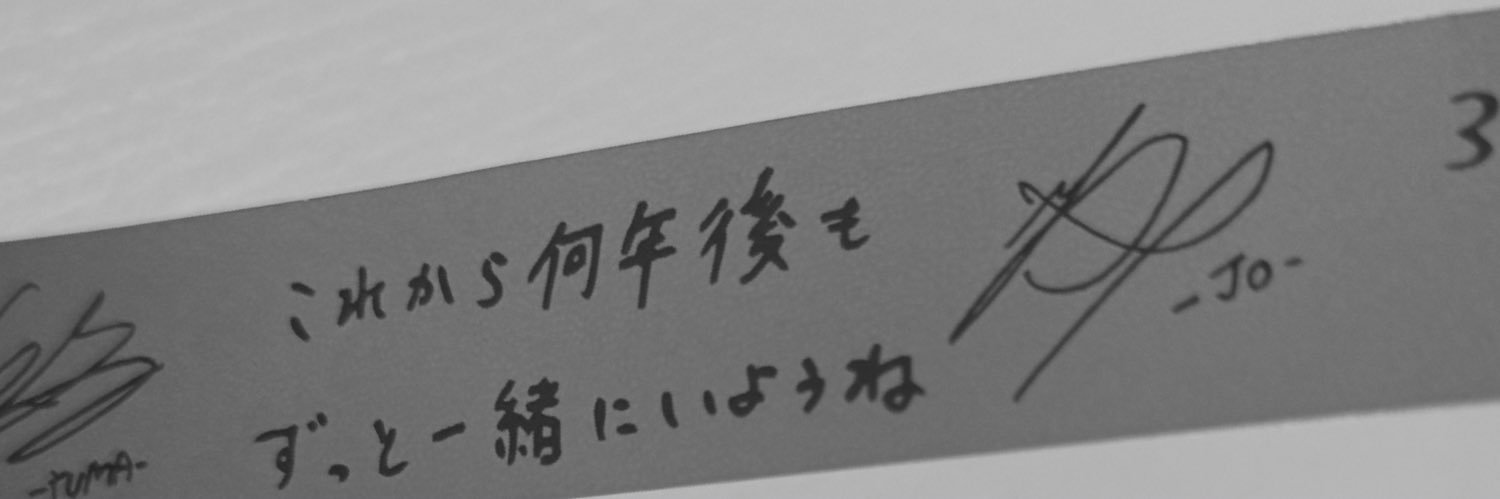 これから何年後も
ずっと一緒にいようね
-JO-
-YUMA-
3